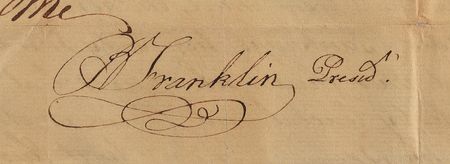 me
B Franklin Presid.t